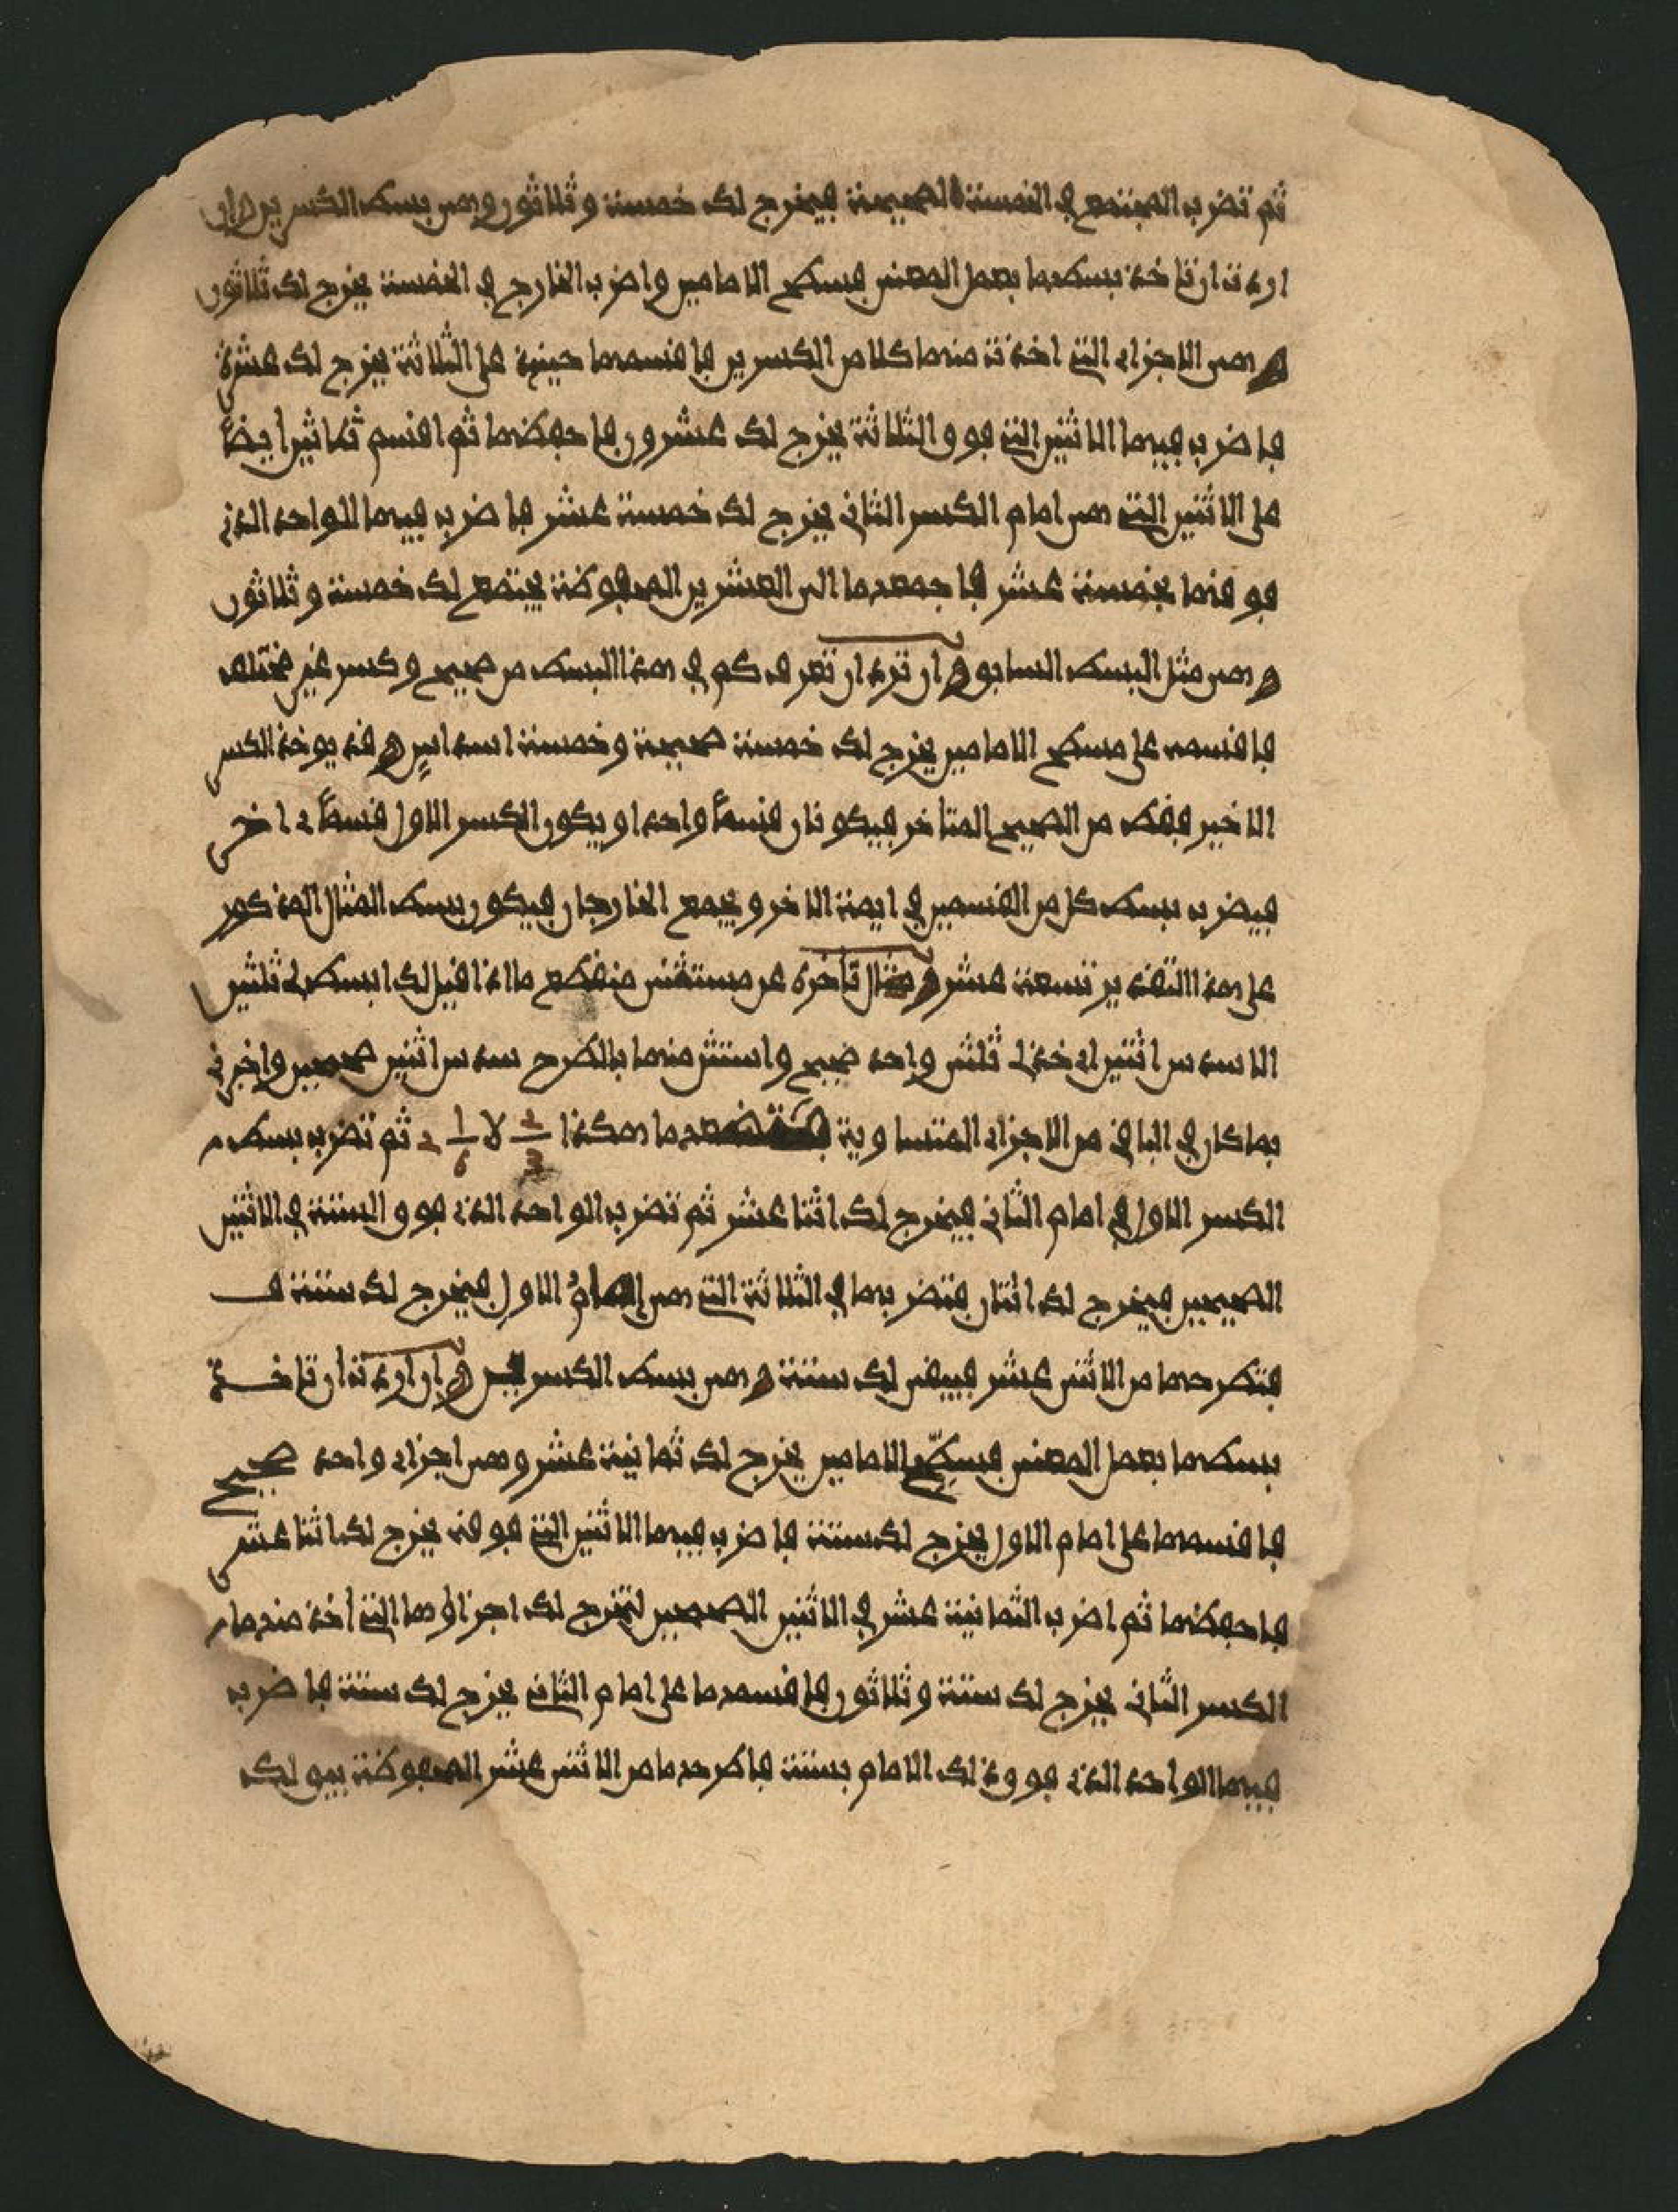 ثم تضرب المجتمع في الخمسة الصحيحة فيخرج لك خمسة وثلاثون وهي بسط الكسرين وان
اردت ان تاخذ بسطهما بعمل المعنى فسطح الامامين واضرب الخارج في الخمسة يخرج لك ثلاثون
وهي الاجزاء التي اخذت منها كلا من الكسرين فاقسمها حينئذ على الثلاثة يخرج لك عشرة
فاضرب فيها الاثنين التي فوق الثلاثة يخرج لك عشرون فاحفظها ثم اقسم ثلاثين ايضا
على الاثنين التي هي امام الكسر الثاني يخرج لك خمسة عشر فاضرب فيها الواحد الذي
فوقها بخمسة عشر فاجمعها الى العشرين المحفوظة يجتمع لك خمسة وثلاثون
وهي مثل البسط السابق وان ترد ان تعرف كم في هذا البسط من صحيح وكسر غير مختلف
فاقسمه على مسطح الامامين يخرج لك خمسة صحيحة وخمسة اسداس وقد يوخذ الكسر
الاخير فقط من الصحيح المتاخر فيكونان قسما واحدا ويكون الكسر الاول قسما ءاخر
فيضرب بسط كل من القسمين في ايمة الاخر ويجمع الخارجان فيكون بسط المثال المذكور
على هذا التقدير تسعة عشر ومثال تاخره عن مستثنى منقطع ما اذا قيل لك ابسط لي ثلثين
الا سدس اثنين اي خذ لي ثلثي واحد صحيح واستثن منها بالطرح سدس اثنين صحيحين واخبرني
بما كان في الباقي من الاجزاء المتساوية فتضعهما هكذا ٢/٣ لا ١/٦ ٢ ثم تضرب بسط
الكسر الاول في امام الثاني فيخرج لك اثنا عشر ثم تضرب الواحد الذي فوق الستة في الاثنين
الصحيحين فيخرج لك اثنان فتضربها في الثلاثة التي هي امام الاول فيخرج لك ستة
فتطرحها من الاثني عشر فيبقى لك ستة وهي بسط الكسرين وان اردت ان تاخذ
بسطهما بعمل المعنى فسطح الامامين يخرج لك ثمانية عشر وهي اجزاء واحد صحيح
فاقسمها على امام الاول يخرج لك ستة فاضرب فيها الاثنين التي فوقه يخرج لك اثنا عشر
فاحفظها ثم اضرب الثمانية عشر في الاثنين الصحيحين لتخرج لك اجزاؤها التي اخذ منها
الكسر الثاني يخرج لك ستة وثلاثون فاقسمها على امام الثاني يخرج لك ستة فاضرب
فيها الواحد الذي فوق ذلك الامام بستة فاطرحها من الاثني عشر المحفوظة يبق لك